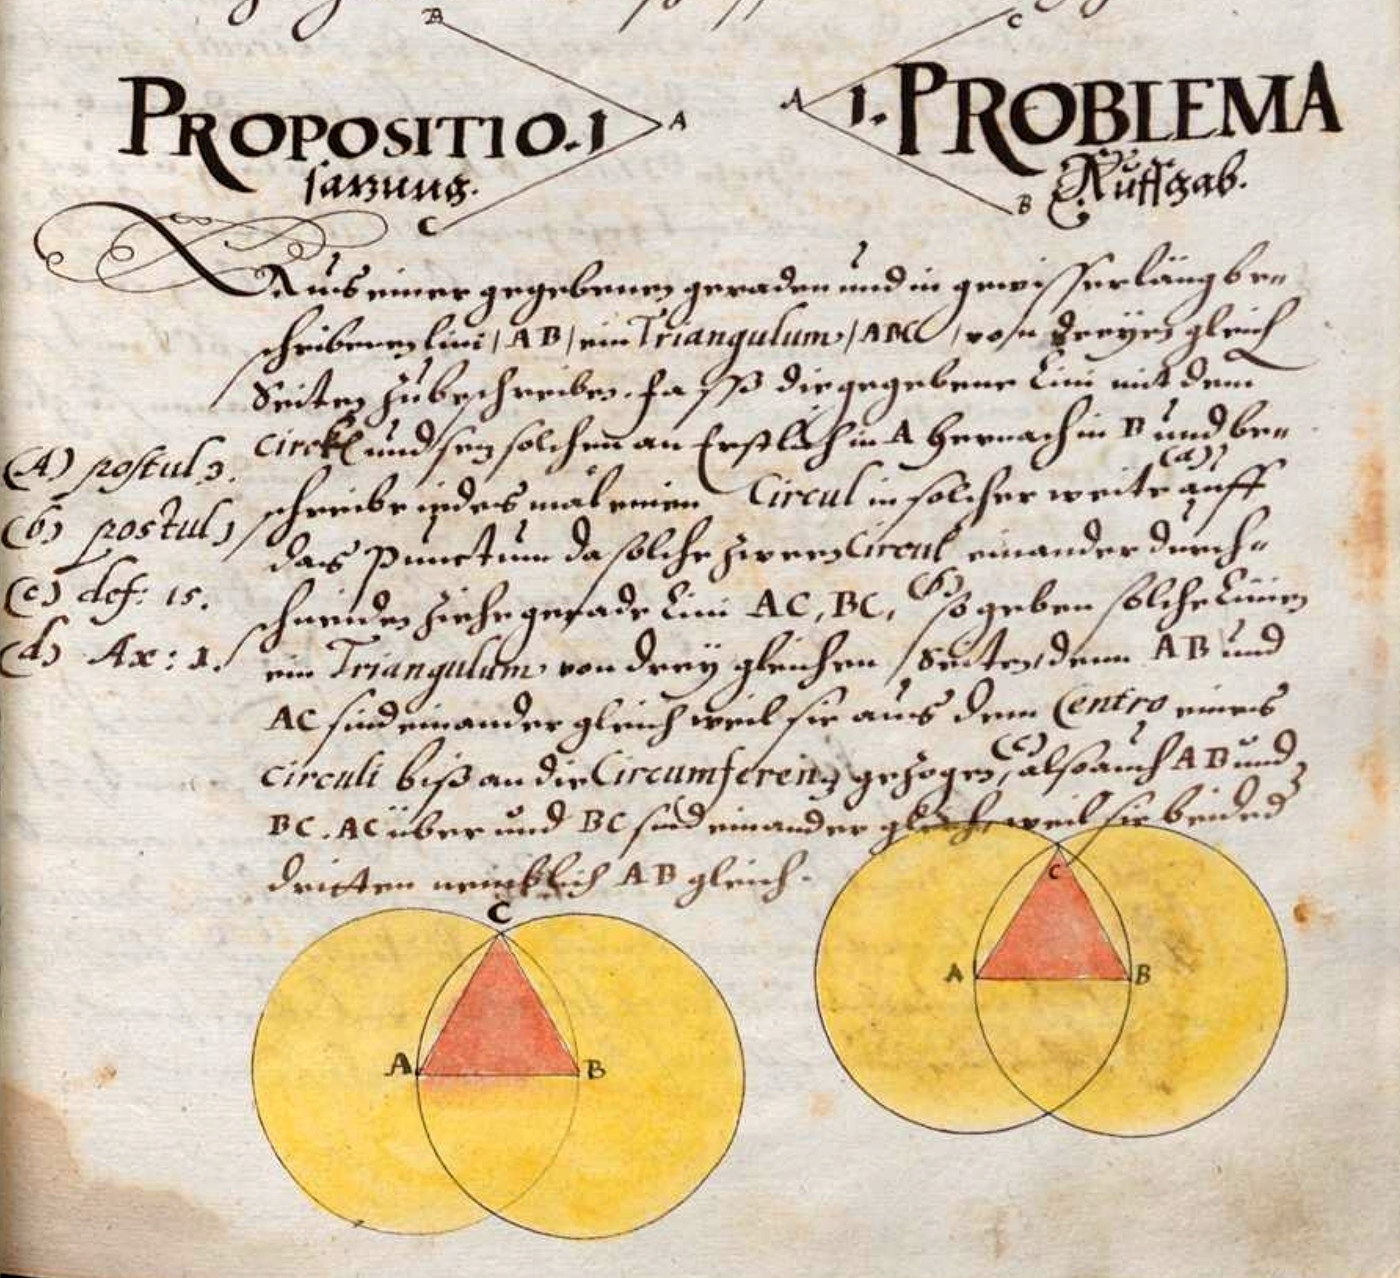 B
C
PROPOSITIO. 1 A
A 1. PROBLEMA
satzung.
C
B
Auffgab.
Aus einer gegebenen geraden und in gewisser läng be=
schribenen lini / AB / ein Triangulum / ABC / von dreyen gleich
Seiten zübeschreiben. fasß die gegebene Lini mit dem
Circkl und sez solchen an Erstlich in A hernach in B und be=
(A) postul 3.
schreibe iedes mal einen Circul in solcher weite (a) auff
(b) postul 1
das Punctum da solche zween Circul einander durch=
(c) def: 15.
schneiden ziehe gerade Lini AC, BC, (b) so geben solche Linien
(d) Ax: 1.
ein Triangulum von dreÿ gleichen Seiten, denn AB und
AC sind einander gleich weil sie aus dem Centro eines
Circuli biß an die Circumferenz gezogen, (c) also auch AB und
BC. AC über und BC sind einander gleich, weil sie beied
dritten nemblich AB gleich.
C
A B
C
A B